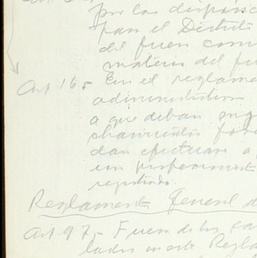 por las disposic
para el Distrito
del fuero com
materia del fu
Art 165 En el reglame
administrativa
a que deban suj
dan efectuar a
un
registrado.
Reglamento General d
Art. 975 Fuera de los ca
lados en este Regla